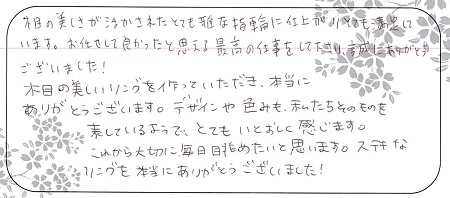 木目の美しさが活かされたとても雅な指輪に仕上がりとても満足して
います。お任せして良かったと思える最高の仕事をして下さり、誠にありがとう
ございました!
木目の美しいリングを作っていただき、本当に
ありがとうございます。デザインや色みも、私たちそのものを
表しているようで、とてもいとおしく感じます。
これから大切に、毎日眺めたいと思います。ステキな
リングを本当にありがとうございました!